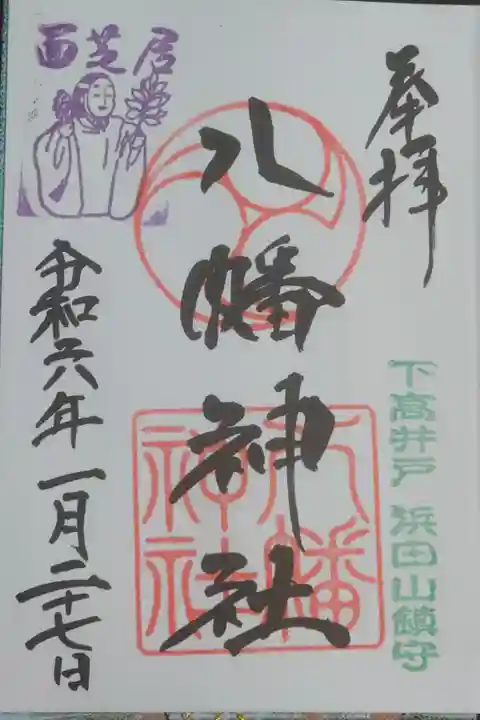 奉拝
下高井戸 浜田山鎮守
八幡神社
八幡
神社
面芝居
令和六年一月二十七日